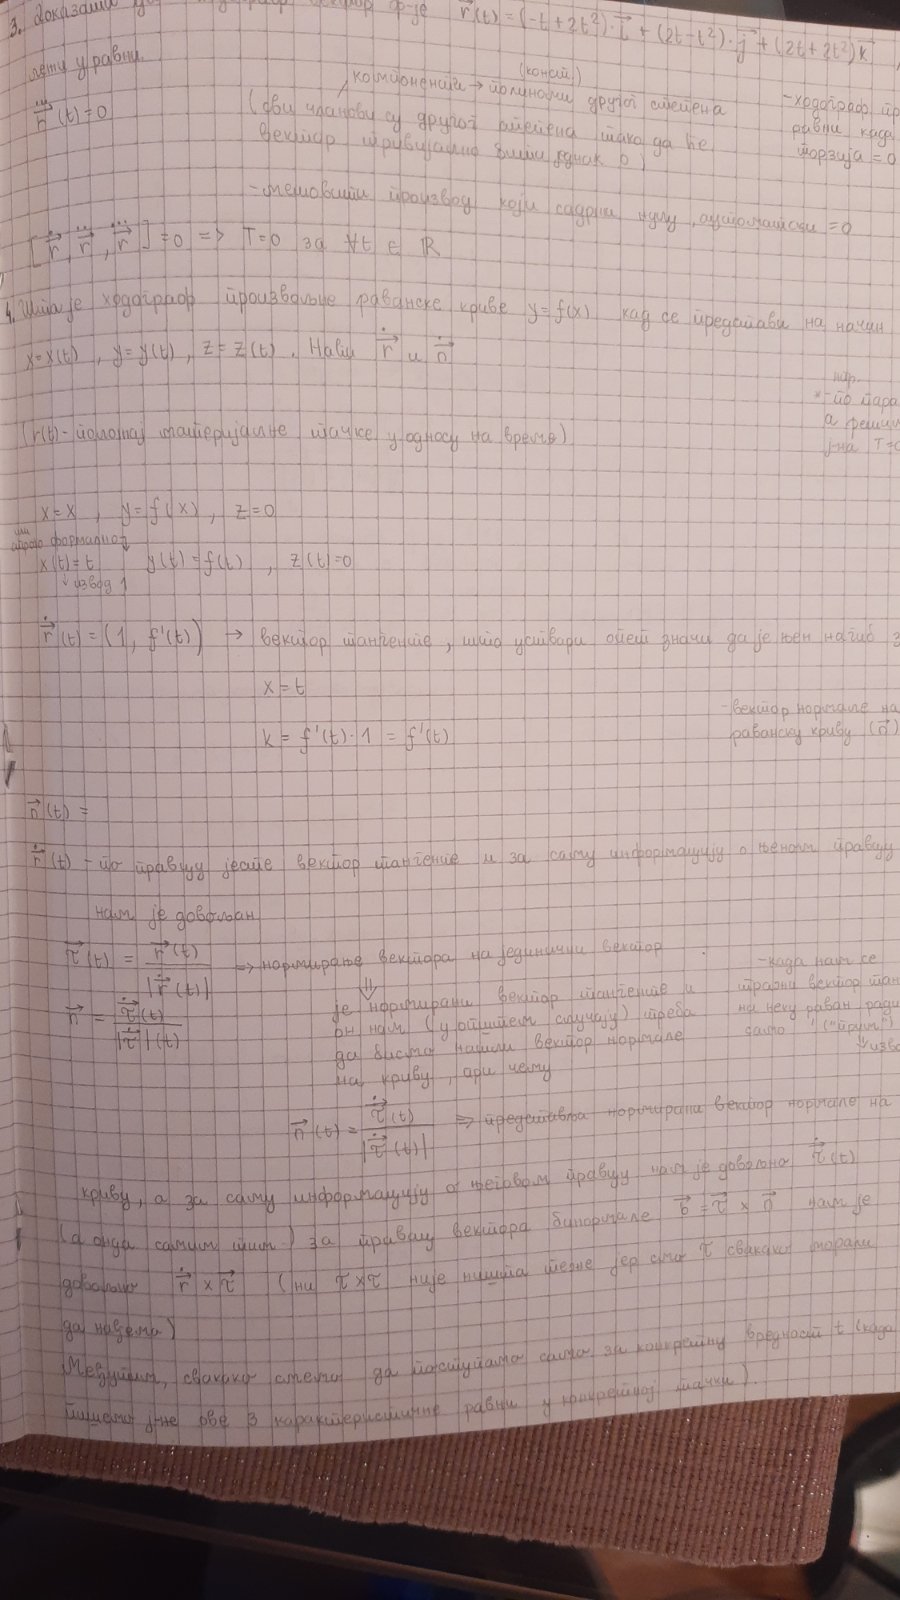 3. Доказати да ходограф вектор ф-је r⃗(t) = (-t+2t²)·i⃗ + (2t-t²)·j⃗ + (2t+2t²)k⃗
лежи у равни.
(конст.)
r⃗⃛(t)=0 компоненте → полиноми другог степена
(сви чланови су другог степена тако да ће
вектор тривијално бити једнак 0)
-ходограф
равни када
торзија = 0
-мешовити производ који садржи нулу, аутоматски = 0
[r⃗̇, r⃗̈, r⃗⃛] = 0 => T=0 за ∀t ∈ ℝ
4. Шта је ходограф произвољне раванске криве y=f(x) кад се представи на начин
x=x(t), y=y(t), z=z(t). Наћи r⃗̇ и n⃗
нпр.
*-по
а
ј-на
(r(t)- положај материјалне тачке у односу на време)
x=x, y=f(x), z=0
или
строго формално↓
x(t)=t y(t)=f(t), z(t)=0
↓ извод 1
r⃗̇(t)=(1, f'(t)) → вектор тангенте, што уствари опет значи да је њен нагиб
x=t
k = f'(t)·1 = f'(t)
-вектор нормале на
раванску криву (n⃗)
n⃗(t) =
r⃗̇(t) -по правцу јесте вектор тангенте и за саму информацију о њеном правцу
нам је довољан
τ⃗(t) = r⃗̇(t) / |r⃗̇(t)| → нормирање вектора на јединични вектор
⇓
n⃗ = τ⃗̇(t) / |τ⃗̇|(t)
је нормирани вектор тангенте и
он нам (у општем случају) треба
да бисмо нашли вектор нормале
на криву, при чему
-када нам се
тражи вектор
на неку раван
само ' ("прим")
⇓
n⃗(t) = τ⃗̇(t) / |τ⃗̇(t)| => представља нормирани вектор нормале на
криву, а за саму информацију о његовом правцу нам је довољно τ⃗̇(t)
(а онда самим тим) за правац вектора бинормале b⃗ = τ⃗ × n⃗ нам је
довољно r⃗̇ × τ⃗̇ (ни τ×τ̇ није ништа теже јер смо τ свакако морали
да нађемо)
Међутим, свакако смемо да поступамо само за конкретну вредност t (када
пишемо ј-не ове 3 карактеристичне равни у конкретној тачки).